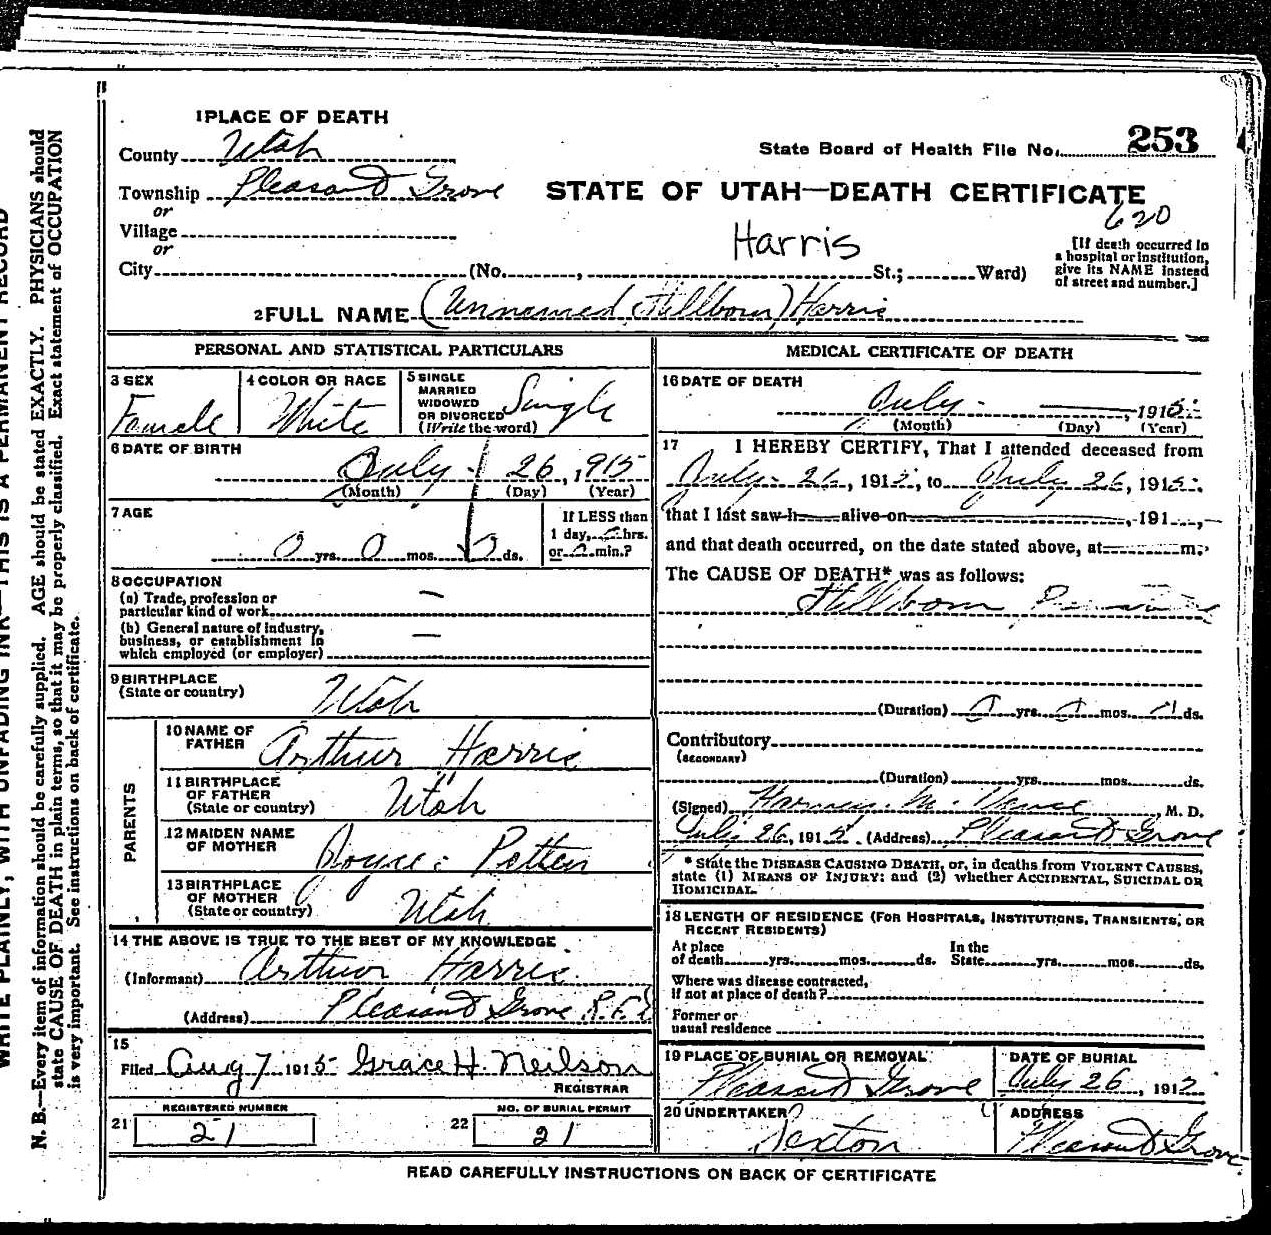 WRITE PLAINLY, WITH UNFADING INK—THIS IS A PERMANENT RECORD
N. B.—Every item of information should be carefully supplied. AGE should be stated EXACTLY. PHYSICIANS should
state CAUSE OF DEATH in plain terms, so that it may be properly classified. Exact statement of OCCUPATION
is very important. See instructions on back of certificate.
1 PLACE OF DEATH
County Utah
State Board of Health File No. 253
Township Pleasant Grove
STATE OF UTAH—DEATH CERTIFICATE
620
or
Village
or
City (No. , St.; Ward)
Harris
[If death occurred in
a hospital or institution,
give its NAME instead
of street and number.]
2 FULL NAME (Unnamed Stillborn) Harris
PERSONAL AND STATISTICAL PARTICULARS
3 SEX
Female
4 COLOR OR RACE
White
5 SINGLE
MARRIED
WIDOWED
OR DIVORCED
(Write the word)
Single
6 DATE OF BIRTH
July 26, 1915
(Month) (Day) (Year)
7 AGE
0 yrs. 0 mos. 0 ds.
If LESS than
1 day, hrs.
or min.?
8 OCCUPATION
(a) Trade, profession or
particular kind of work —
(b) General nature of industry,
business, or establishment in
which employed (or employer) —
9 BIRTHPLACE
(State or country)
Utah
PARENTS
10 NAME OF
FATHER
Arthur Harris
11 BIRTHPLACE
OF FATHER
(State or country)
Utah
12 MAIDEN NAME
OF MOTHER
Joyce Petten
13 BIRTHPLACE
OF MOTHER
(State or country)
Utah
14 THE ABOVE IS TRUE TO THE BEST OF MY KNOWLEDGE
(Informant) Arthur Harris
(Address) Pleasant Grove R.F.D
15
Filed Aug 7 1915 Grace H. Neilson
REGISTRAR
REGISTERED NUMBER
21 21
NO. OF BURIAL PERMIT
22 21
MEDICAL CERTIFICATE OF DEATH
16 DATE OF DEATH
July — , 1915
(Month) (Day) (Year)
17 I HEREBY CERTIFY, That I attended deceased from
July 26, 1915, to July 26, 1915,
that I last saw h alive on , 191 ,
and that death occurred, on the date stated above, at m.
The CAUSE OF DEATH* was as follows:
Stillborn
(Duration) yrs. mos. ds.
Contributory
(SECONDARY)
(Duration) yrs. mos. ds.
(Signed) M. D.
July 26, 1915. (Address) Pleasant Grove
* State the DISEASE CAUSING DEATH, or, in deaths from VIOLENT CAUSES,
state (1) MEANS OF INJURY; and (2) whether ACCIDENTAL, SUICIDAL OR
HOMICIDAL.
18 LENGTH OF RESIDENCE (FOR HOSPITALS, INSTITUTIONS, TRANSIENTS, OR
RECENT RESIDENTS)
At place
of death yrs. mos. ds.
In the
State yrs. mos. ds.
Where was disease contracted,
if not at place of death?
Former or
usual residence
19 PLACE OF BURIAL OR REMOVAL
Pleasant Grove
DATE OF BURIAL
July 26, 1915
20 UNDERTAKER
Sexton
ADDRESS
Pleasant Grove
READ CAREFULLY INSTRUCTIONS ON BACK OF CERTIFICATE